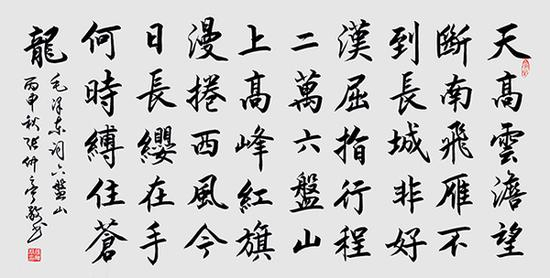 天高雲澹望
斷南飛雁不
到長城非好
漢屈指行程
二萬六盤山
上高峰紅旗
漫捲西風今
日長纓在手
何時縛住蒼
龍
毛泽东词六盤山
丙申秋张仲亭敬书